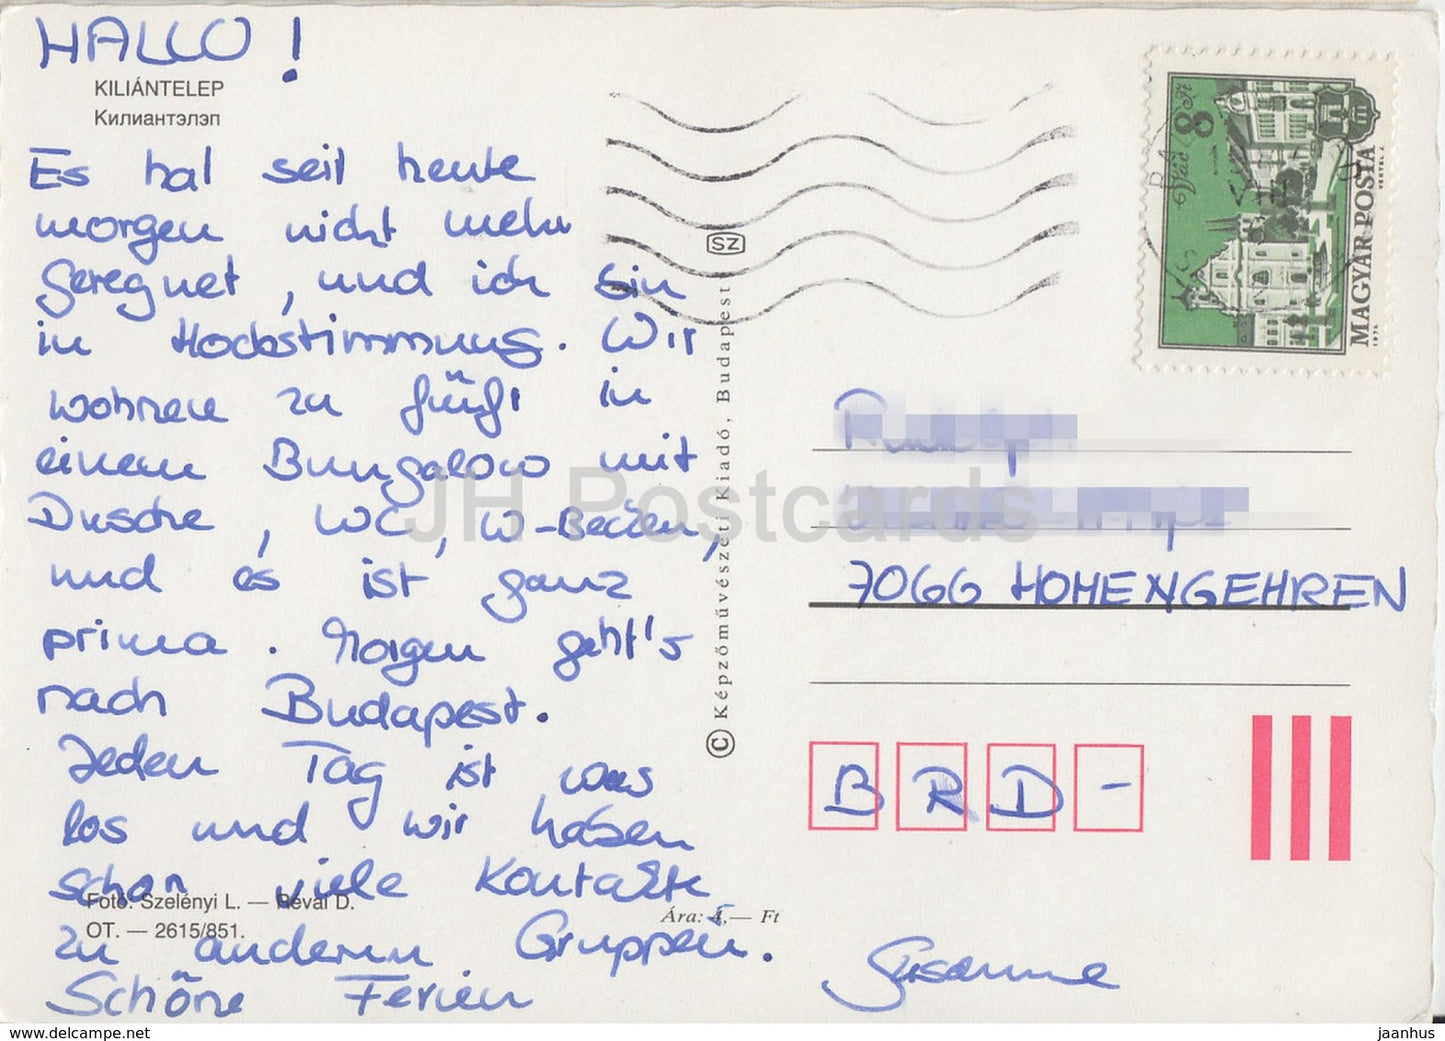 HALLO !
KILIÁNTELEP
Килиантэлэп
Es hat seit heute
morgen nicht mehr
geregnet, und ich bin
in Hochstimmung. Wir
wohnen zu fünft in
einem Bungalow mit
Dusche, WC, W-Becken,
und es ist ganz
prima. Morgen geht's
nach Budapest.
Jeden Tag ist was
los und wir haben
schon viele Kontakte
zu anderen Gruppen.
Schöne Ferien
Susanne
Fotó: Szelényi L. — Révai D.
OT. — 2615/851.
Ára: 4,— Ft
SZ
© Képzőművészeti Kiadó, Budapest
Vác 8 Ft
MAGYAR POSTA
VERTEL J.
1974
7066 HOHENGEHREN
BRD-
JH Postcards
www.delcampe.net
jaanhus